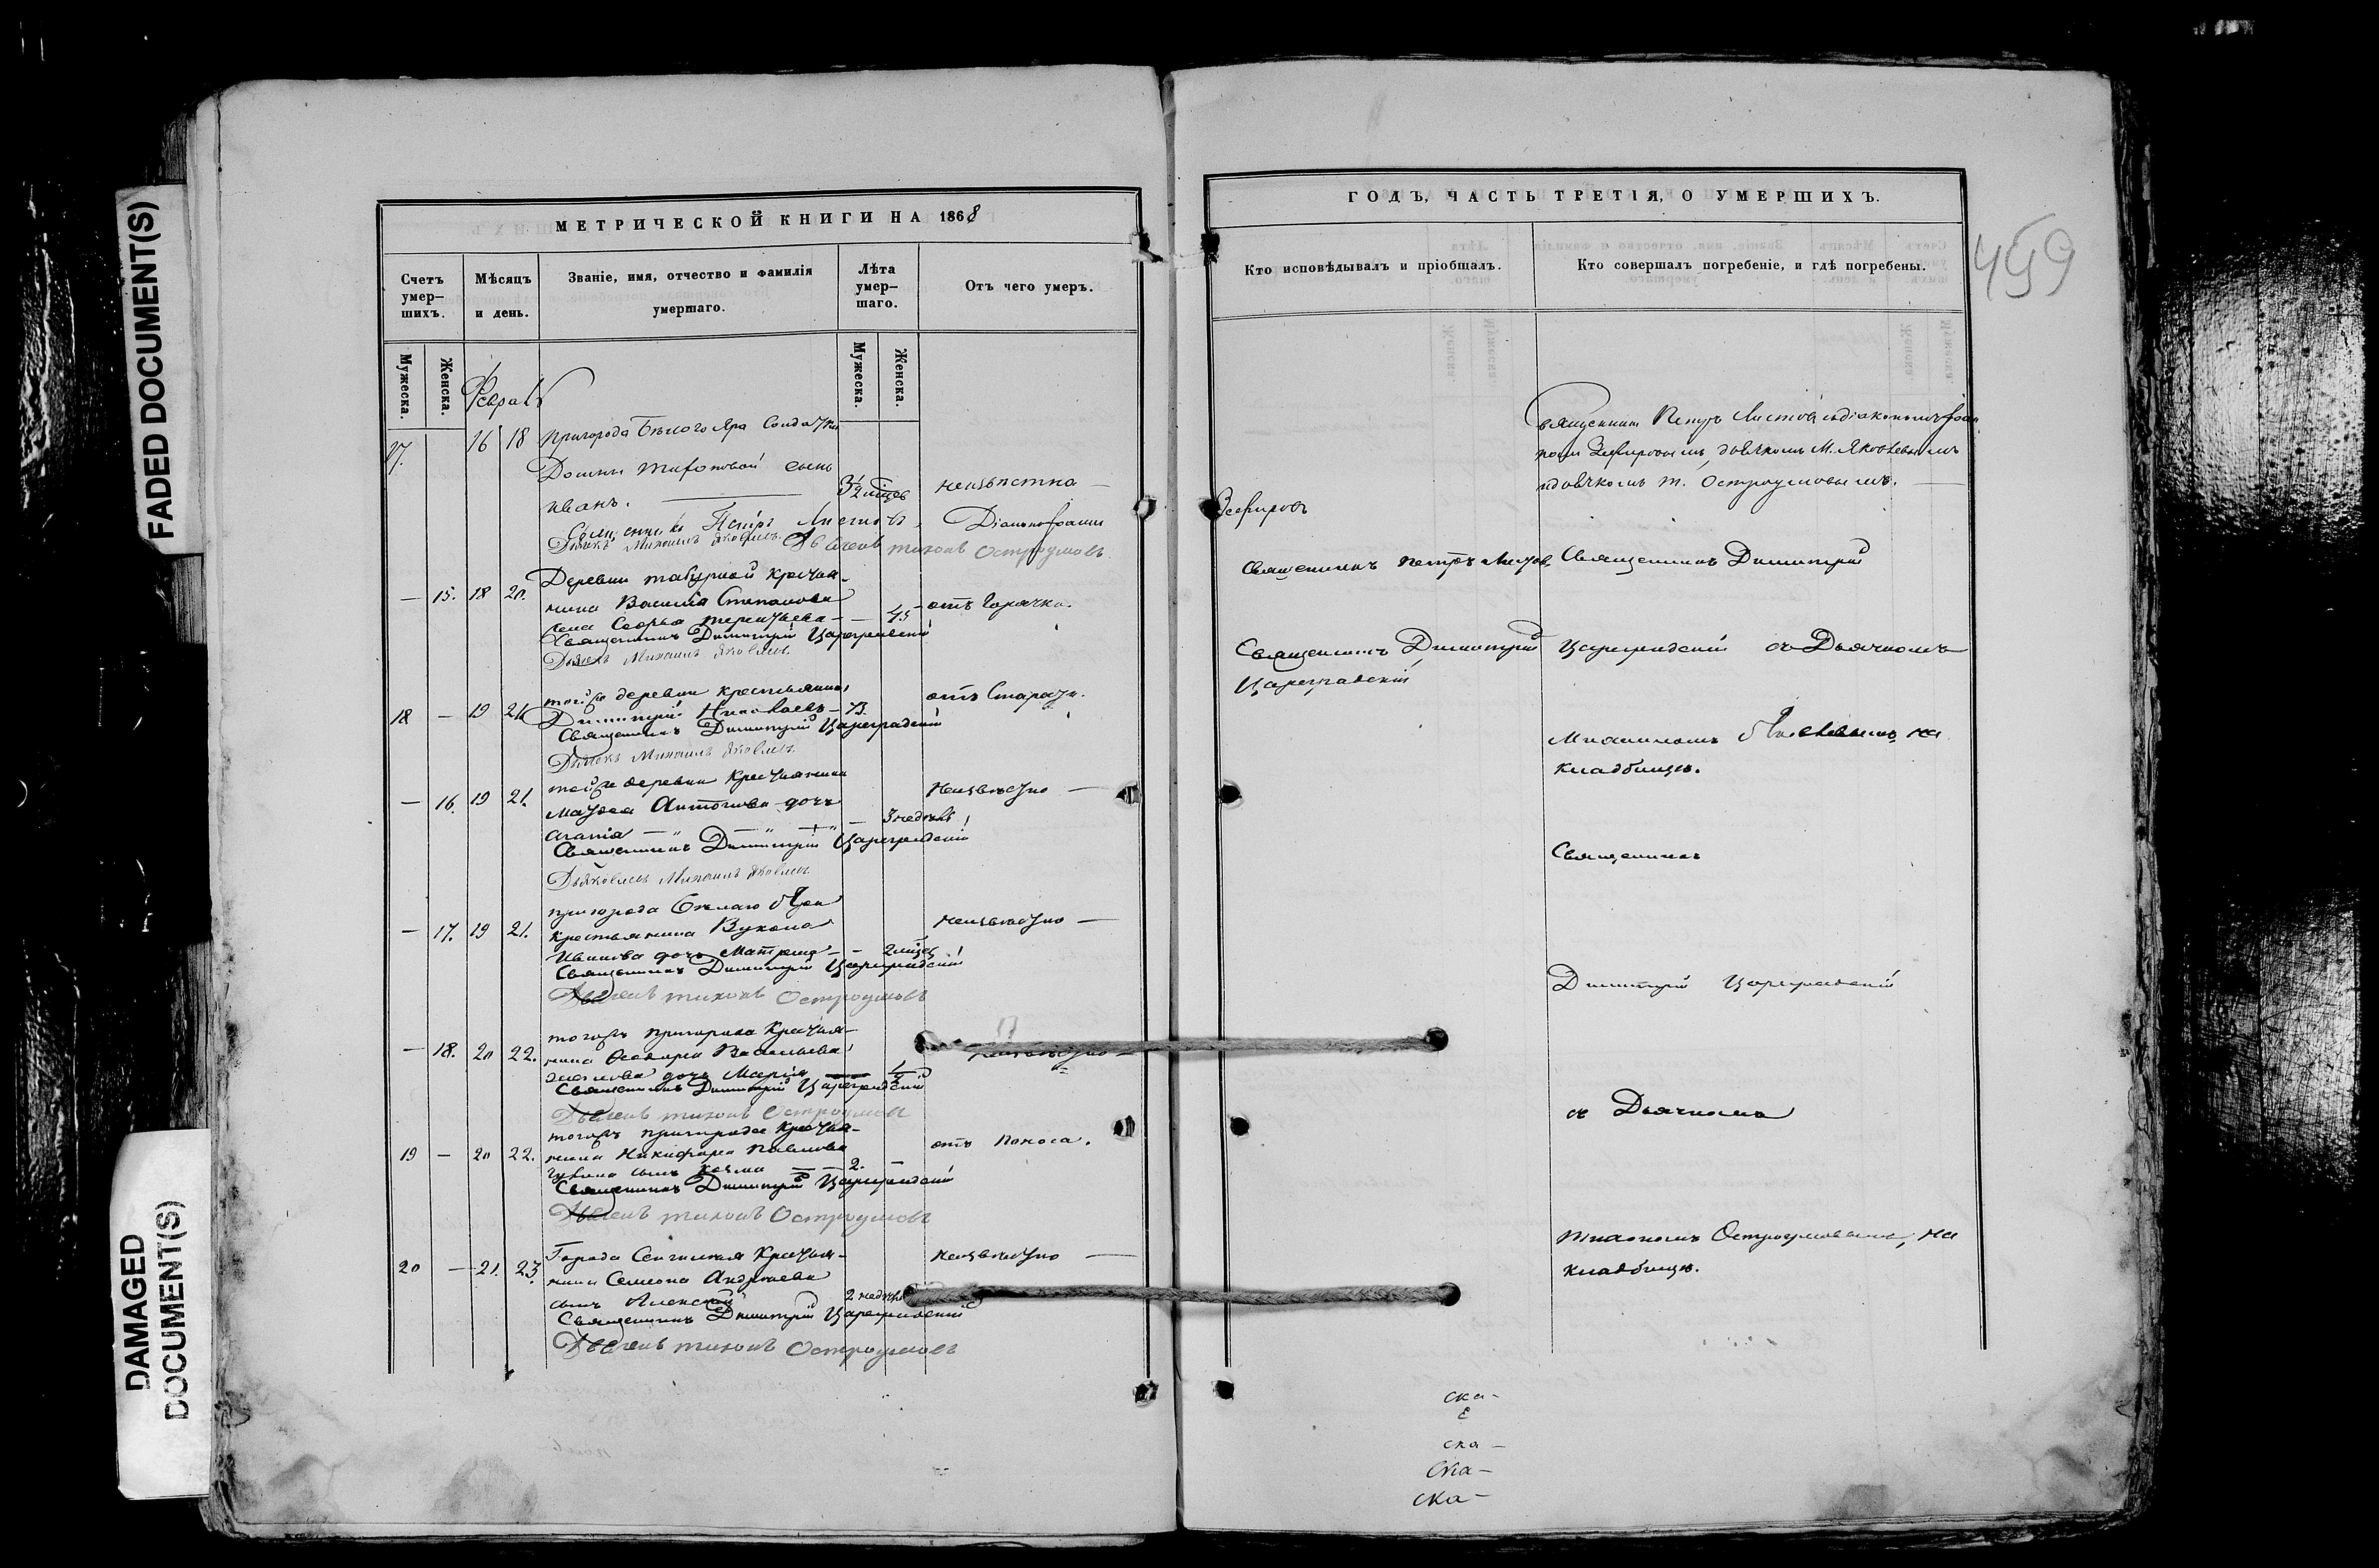 FADED DOCUMENT(S)
DAMAGED
DOCUMENT(S)
МЕТРИЧЕСКОЙ КНИГИ НА 1868
Счетъ умер-шихъ.
Мѣсяцъ и день.
Званіе, имя, отчество и фамилія умершаго.
Лѣта умер-шаго.
Отъ чего умеръ.
Мужеска.
Женска.
Мужеска.
Женска.
Февраль
17. 16 18 Пригорода Бѣлого Яра Солдатки
Домны Тифоновой сынъ
Иванъ. 3½ мѣсць неизвѣстно —
Священникъ Петръ Листовъ, Діаконъ
Дьячекъ Михаилъ Яковлевъ. Дьячекъ Тихонъ Остроумовъ.
— 15. 18 20. Деревни Табурной крестья-
нина Василія Степанова
жена Софья Терентьева — 45 отъ Горячки.
Священникъ Димитрій Цареградскій
Дьячекъ Михаилъ Яковлевъ.
18 — 19 21. той же деревни крестьянинъ
Димитрій Николаевъ — 73. отъ Старости.
Священникъ Димитрій Цареградскій
Дьячекъ Михаилъ Яковлевъ.
— 16. 19 21. той же деревни крестьянина
Матвея Антонова дочь неизвѣстно —
Агапія — 3 недѣль
Священникъ Димитрій Цареградскій
Михаилъ Яковлевъ.
— 17. 19 21. пригорода Бѣлаго Яра
крестьянина Вукола неизвѣстно —
Иванова дочь Матрена — 2 мѣсц
Священникъ Димитрій Цареградскій
Дьячекъ Тихонъ Остроумовъ
— 18. 20 22. тогожъ пригорода крестья-
нина Ѳеодора Васильева неизвѣстно —
дочь Марія — ½
Священникъ Димитрій Цареградскій
Дьячекъ Тихонъ Остроумовъ
19 — 20 22. тогожъ пригорода крестья-
нина Никифора Павлова отъ поноса.
сынъ Козма — 2. —
Священникъ Димитрій Цареградскій
Дьячекъ Тихонъ Остроумовъ
20 — 21. 23. Города Сенгилея крестья-
нина Семена Андреева неизвѣстно —
сынъ Алексей 2 недѣль
Священникъ Димитрій Цареградскій
Дьячекъ Тихонъ Остроумовъ
ГОДЪ, ЧАСТЬ ТРЕТІЯ, О УМЕРШИХЪ.
459
Кто исповѣдывалъ и пріобщалъ.
Кто совершалъ погребеніе, и гдѣ погребены.
Священникъ Петръ Листовъ съ діакономъ
Зефировымъ, дьячкомъ М. Яковлевымъ
и дьячкомъ Т. Остроумовымъ. —
Зефировъ
Священникъ Петръ Листовъ, Священникъ Димитрій
Священникъ Димитрій Цареградскій съ Дьячкомъ
Цареградскій
Михаиломъ Яковлевымъ, на
кладбищѣ.
Священникъ
Димитрій Цареградскій
съ Дьячкомъ
Тихономъ Остроумовымъ, на
кладбищѣ.
ска-
ска-
ска-
ска-